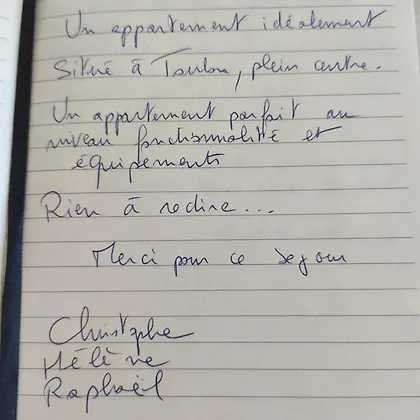 Un appartement idéalement
Situé à Toulon, plein centre.
Un appartement parfait au
niveau fonctionnalité et
équipements
Rien à redire...
Merci pour ce sejour
Christophe
Hélène
Raphaël